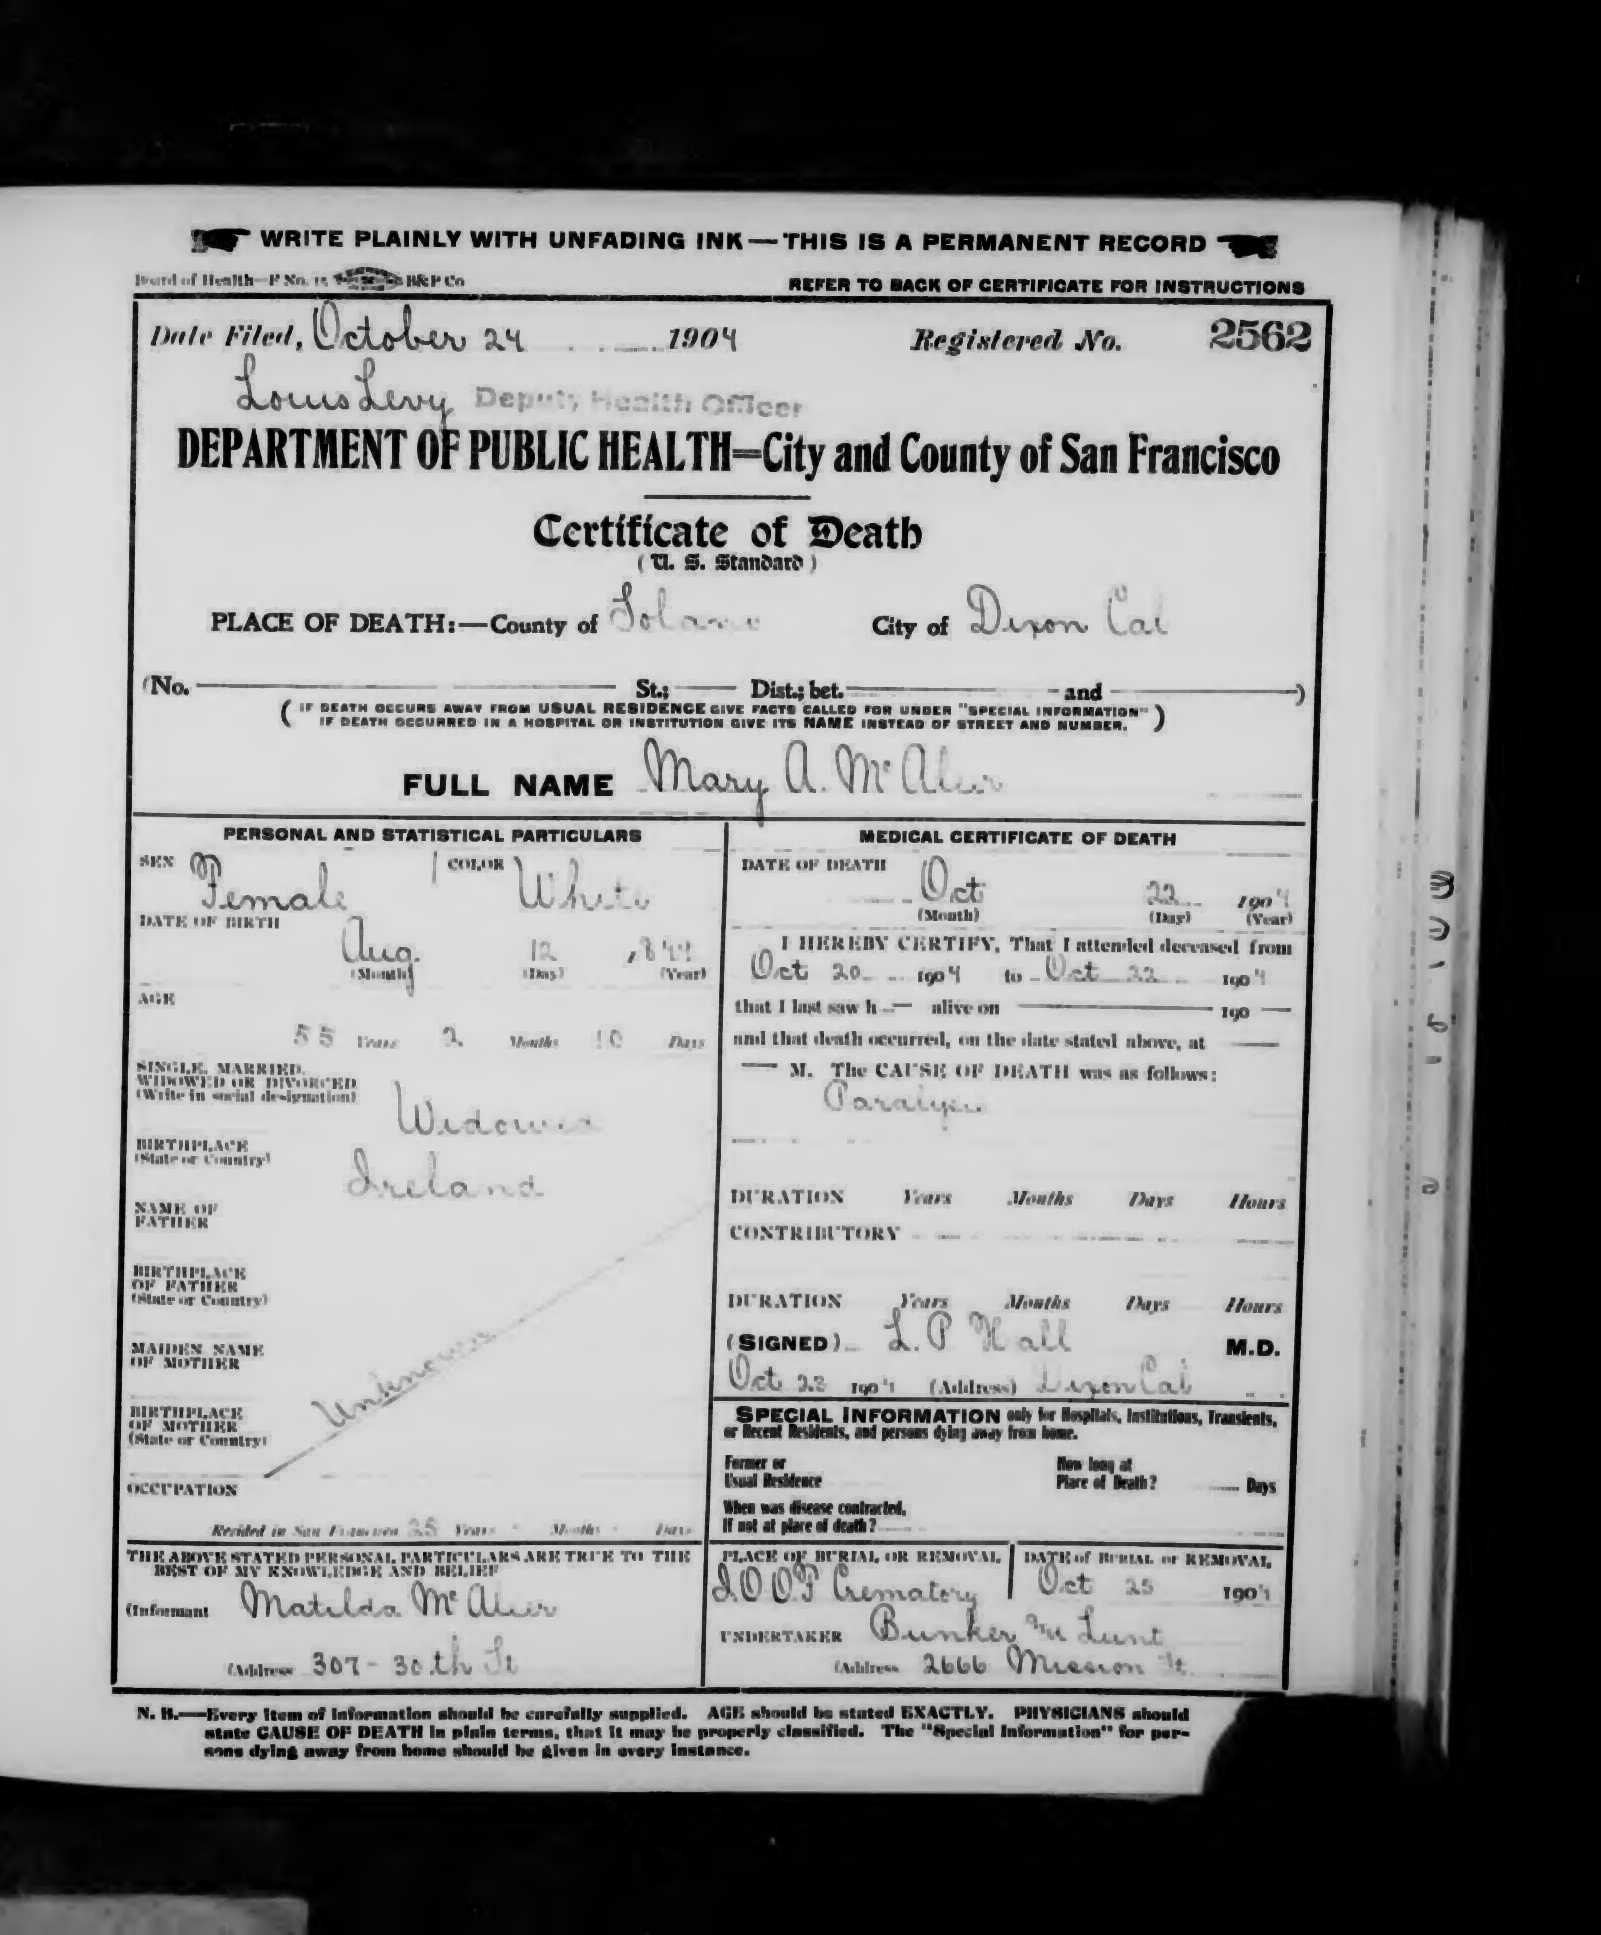 WRITE PLAINLY WITH UNFADING INK—THIS IS A PERMANENT RECORD
Board of Health—F No. 15 B&P Co
REFER TO BACK OF CERTIFICATE FOR INSTRUCTIONS
Date Filed, October 24 1904 Registered No. 2562
Louis Levy Deputy Health Officer
DEPARTMENT OF PUBLIC HEALTH=City and County of San Francisco
Certificate of Death
(U. S. Standard)
PLACE OF DEATH:—County of Solano City of Dixon Cal
(No. St.; Dist.; bet. and )
(IF DEATH OCCURS AWAY FROM USUAL RESIDENCE GIVE FACTS CALLED FOR UNDER "SPECIAL INFORMATION"
IF DEATH OCCURRED IN A HOSPITAL OR INSTITUTION GIVE ITS NAME INSTEAD OF STREET AND NUMBER.)
FULL NAME Mary A. McAleer
PERSONAL AND STATISTICAL PARTICULARS
SEX Female COLOR White
DATE OF BIRTH
Aug. 12
(Month) (Day) (Year)
AGE
55 Years 2 Months 10 Days
SINGLE, MARRIED,
WIDOWED OR DIVORCED
(Write in social designation)
Widowed
BIRTHPLACE
(State or Country)
Ireland
NAME OF
FATHER
BIRTHPLACE
OF FATHER
(State or Country)
MAIDEN NAME
OF MOTHER
Unknown
BIRTHPLACE
OF MOTHER
(State or Country)
OCCUPATION
Resided in San Francisco 25 Years Months Days
THE ABOVE STATED PERSONAL PARTICULARS ARE TRUE TO THE
BEST OF MY KNOWLEDGE AND BELIEF
(Informant Matilda McAleer
(Address 307-30th St
MEDICAL CERTIFICATE OF DEATH
DATE OF DEATH
Oct 22 1904
(Month) (Day) (Year)
I HEREBY CERTIFY, That I attended deceased from
Oct 20 1904 to Oct 22 1904
that I last saw h— alive on 190—
and that death occurred, on the date stated above, at —
— M. The CAUSE OF DEATH was as follows:
Paralysis
DURATION Years Months Days Hours
CONTRIBUTORY
DURATION Years Months Days Hours
(SIGNED) L. P Hall M.D.
Oct 23 1904 (Address) Dixon Cal
SPECIAL INFORMATION only for Hospitals, Institutions, Transients,
or Recent Residents, and persons dying away from home.
Former or
Usual Residence
How long at
Place of Death? Days
When was disease contracted,
If not at place of death?
PLACE OF BURIAL OR REMOVAL
I.O.O.F Crematory
DATE of BURIAL or REMOVAL
Oct 25 1904
UNDERTAKER Bunker and Lunt
(Address 2666 Mission St
N. B.—Every item of information should be carefully supplied. AGE should be stated EXACTLY. PHYSICIANS should
state CAUSE OF DEATH in plain terms, that it may be properly classified. The "Special Information" for per-
sons dying away from home should be given in every instance.